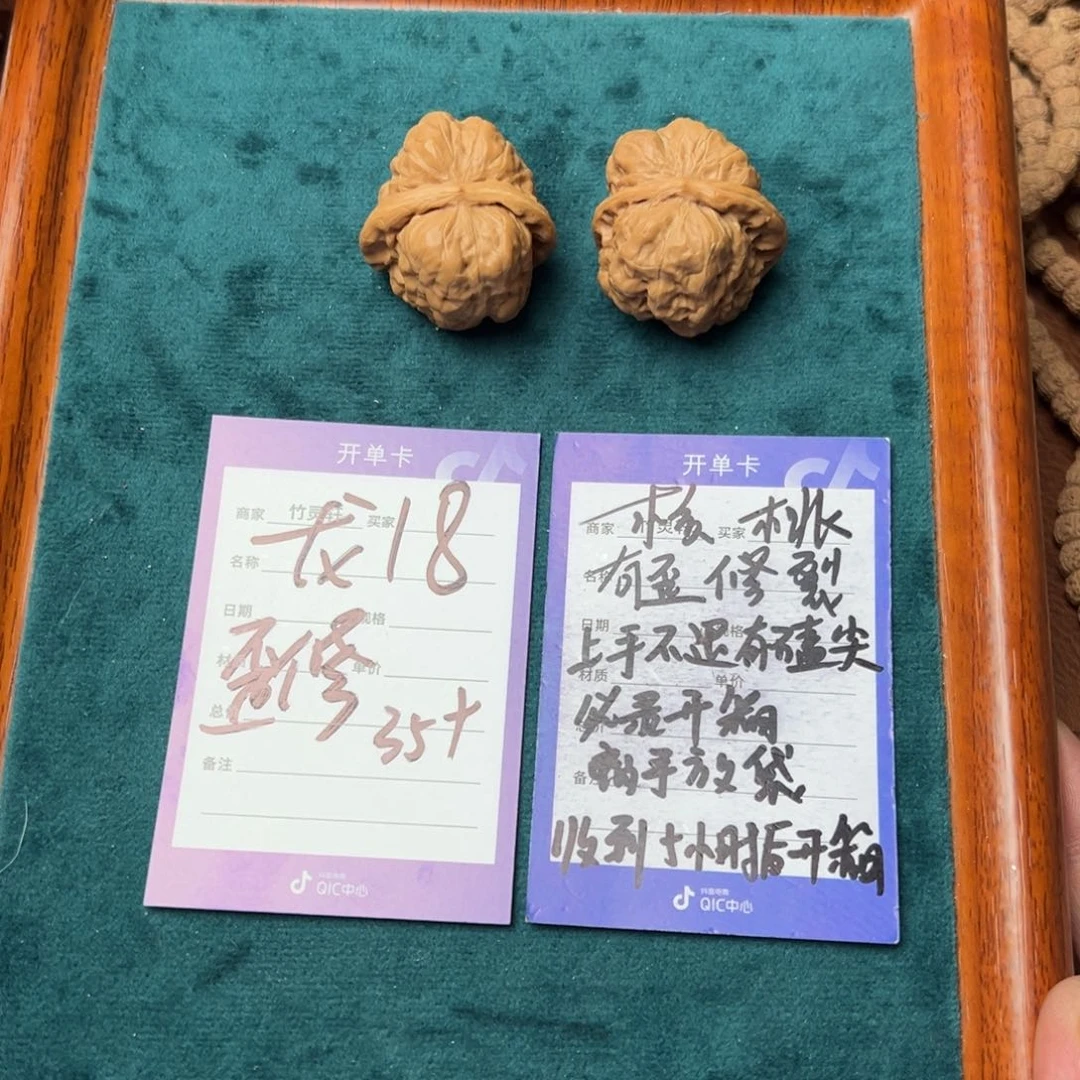 开单卡
商家 竹灵轩 买家
18
名称
日期 规格
材质 单价
35+
备注
QIC中心
开单卡
商家 竹灵轩 买家
核桃
名称
有歪修裂
日期 规格
上手不退有磕尖
材质 单价
必录开箱
备注
到手放袋
收到十小时后开箱
抖音电商
QIC中心